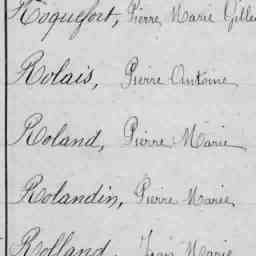 Roquefort, Pierre Marie Gilles
Rolais, Pierre Antoine
Roland, Pierre Marie
Rolandin, Pierre Marie
Rolland, Jean Marie